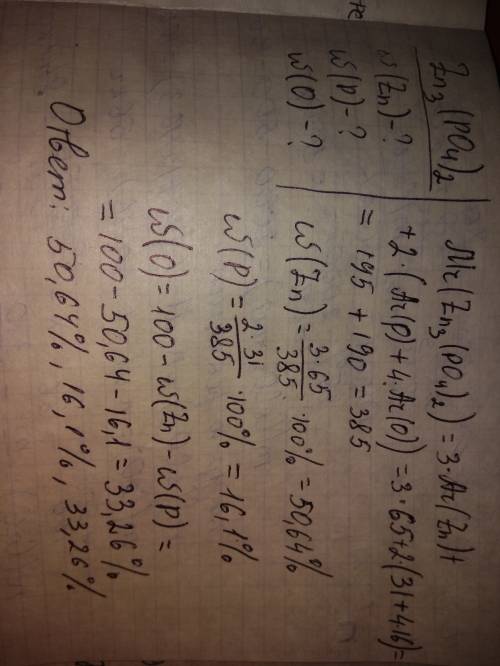 Zn₃(PO₄)₂
W(Zn)-?
W(P)-?
W(O)-?
Mr(Zn₃(PO₄)₂) = 3·Ar(Zn)+
+2·(Ar(P)+4·Ar(O)) = 3·65+2(31+4·16) =
= 195 + 190 = 385
W(Zn) = 3·65/385 ·100% = 50,64%
W(P) = 2·31/385 ·100% = 16,1%
W(O) = 100 - W(Zn) - W(P) =
= 100 - 50,64 - 16,1 = 33,26%
Ответ: 50,64%, 16,1%, 33,26%